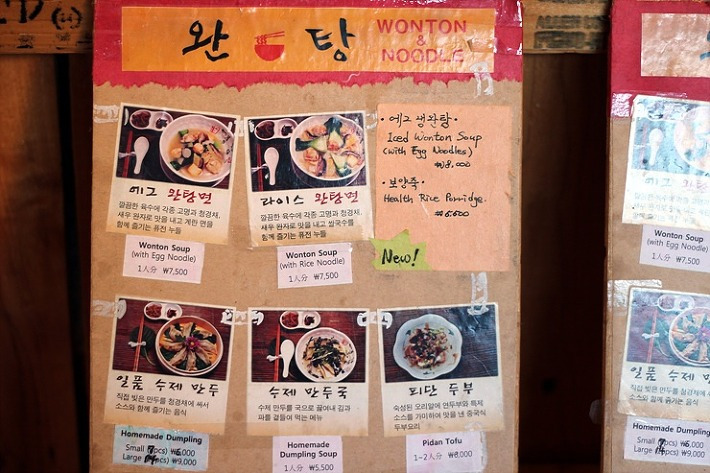 완 탕
WONTON
&
NOODLE
에그 완탕면
깔끔한 육수에 각종 고명과 청경채,
새우 완자로 맛을 내고 계란 면을
함께 즐기는 퓨전 누들
Wonton Soup
(with Egg Noodle)
1人分 ₩7,500
라이스 완탕면
깔끔한 육수에 각종 고명과 청경채,
새우 완자로 맛을 내고 쌀국수를
함께 즐기는 퓨전 누들
Wonton Soup
(with Rice Noodle)
1人分 ₩7,500
· 에그 냉완탕 ·
Iced Wonton Soup
(with Egg Noodles)
₩8,000
· 보양죽 ·
Health Rice Porridge.
New!
일품 수제 만두
직접 빚은 만두를 청경채에 싸서
소스와 함께 즐기는 음식
Homemade Dumpling
Small
Large ₩9,000
수제 만두국
수제 만두를 국으로 끓여내 김과
파를 곁들여 먹는 메뉴
Homemade
Dumpling Soup
1人分 ₩5,500
피단 두부
숙성된 오리알에 연두부와 특제
소스를 가미하여 맛을 낸 중국식
두부요리
Pidan Tofu
1~2人分
에그 완탕
깔끔한 육수에 각종 고
새우 완자로 맛을 내고
함께 즐기는 퓨전 누들
Wonton Soup
(with Egg Noodle)
1人分 ₩7,500
일품 수제
직접 빚은 만두를 청경
소스와 함께 즐기는 음식
Homemade Dumpling
Small
Large ₩9,000